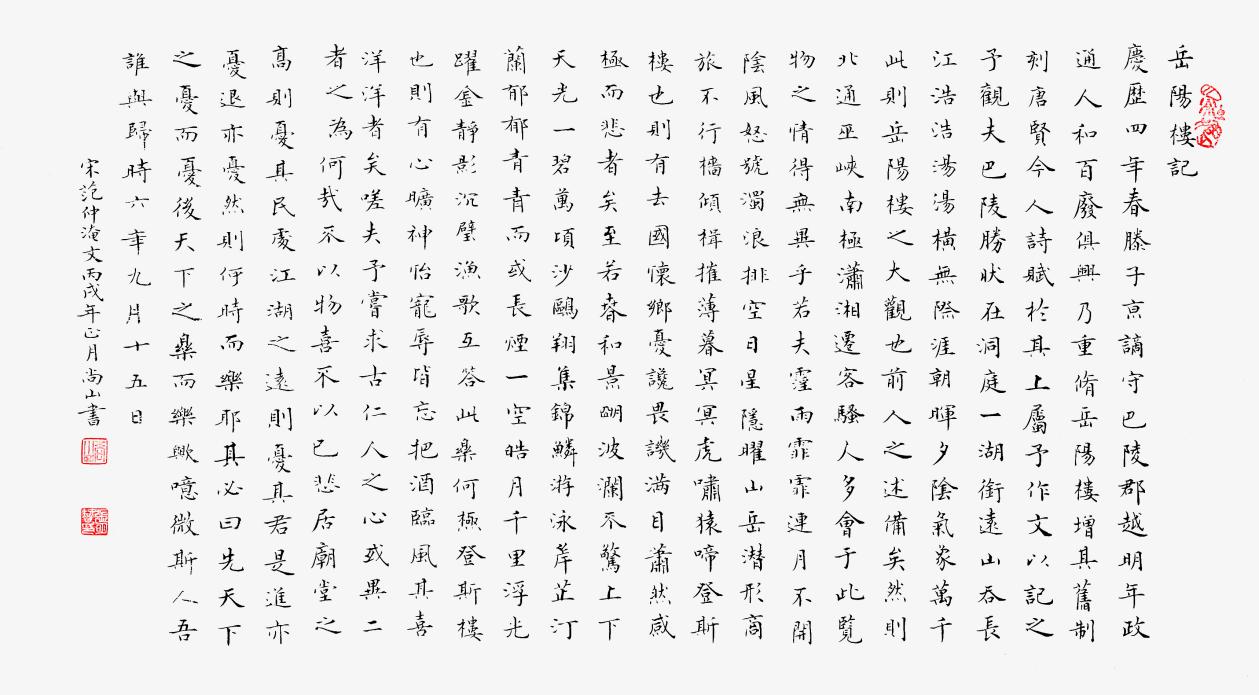 岳陽樓記
慶歷四年春滕子京謫守巴陵郡越明年政
通人和百廢俱興乃重脩岳陽樓增其舊制
刻唐賢今人詩賦於其上屬予作文以記之
予觀夫巴陵勝狀在洞庭一湖銜遠山吞長
江浩浩湯湯橫無際涯朝暉夕陰氣象萬千
此則岳陽樓之大觀也前人之述備矣然則
北通巫峽南極瀟湘遷客騷人多會于此覽
物之情得無異乎若夫霪雨霏霏連月不開
陰風怒號濁浪排空日星隱曜山岳潛形商
旅不行檣傾楫摧薄暮冥冥虎嘯猿啼登斯
樓也則有去國懷鄉憂讒畏譏滿目蕭然感
極而悲者矣至若春和景明波瀾不驚上下
天光一碧萬頃沙鷗翔集錦鱗游泳岸芷汀
蘭郁郁青青而或長煙一空皓月千里浮光
躍金靜影沉璧漁歌互答此樂何極登斯樓
也則有心曠神怡寵辱皆忘把酒臨風其喜
洋洋者矣嗟夫予嘗求古仁人之心或異二
者之為何哉不以物喜不以己悲居廟堂之
高則憂其民處江湖之遠則憂其君是進亦
憂退亦憂然則何時而樂耶其必曰先天下
之憂而憂後天下之樂而樂歟噫微斯人吾
誰與歸時六年九月十五日
宋范仲淹文丙戌年正月尚山書